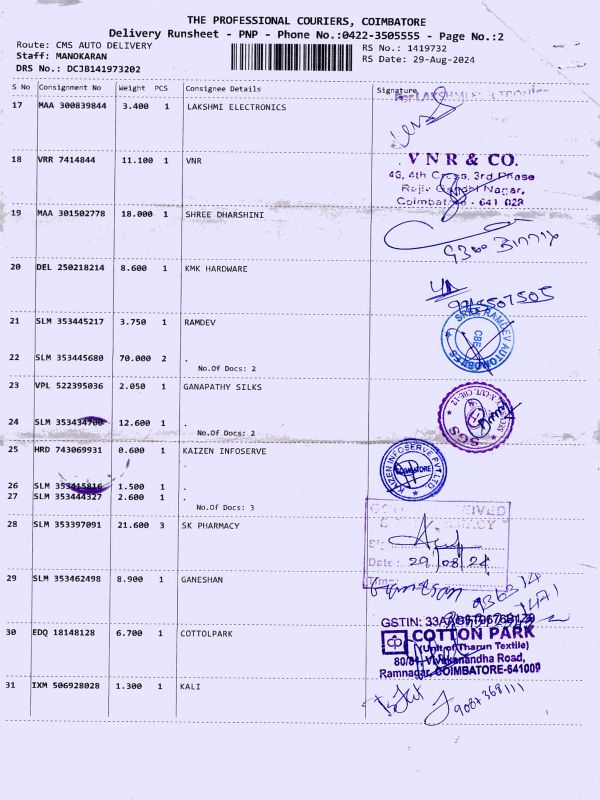 THE PROFESSIONAL COURIERS, COIMBATORE
Delivery Runsheet - PNP - Phone No.:0422-3505555 - Page No.:2
Route: CMS AUTO DELIVERY
Staff: MANOKARAN
DRS No.: DCJB141973202
RS No.: 1419732
RS Date: 29-Aug-2024
S No Consignment No Weight PCS Consignee Details Signature
17 MAA 300839844 3.400 1 LAKSHMI ELECTRONICS
18 VRR 7414844 11.100 1 VNR
VNR & CO.
4th Cross, 3rd Phase
Gandhi Nagar,
19 MAA 301502778 18.000 1 SHREE DHARSHINI
20 DEL 250218214 8.600 1 KMK HARDWARE
21 SLM 353445217 3.750 1 RAMDEV
RAMDEV AUTOMOBILES
CBE
22 SLM 353445680 70.000 2 .
No.Of Docs: 2
23 VPL 522395036 2.050 1 GANAPATHY SILKS
SGS
24 SLM 353434700 12.600 1 .
No.Of Docs: 2
25 HRD 743069931 0.600 1 KAIZEN INFOSERVE
KAIZEN INFOSERVE PVT LTD
COIMBATORE
26 SLM 353415816 1.500 1 .
27 SLM 353444327 2.600 1 .
No.Of Docs: 3
28 SLM 353397091 21.600 3 SK PHARMACY
Date : 29/08/24
Time:
29 SLM 353462498 8.900 1 GANESHAN
30 EDQ 18148128 6.700 1 COTTOLPARK
COTTON PARK
(Unit of Tharun Textile)
80/81, Vivekanandha Road,
Ramnagar, COIMBATORE-641009
31 IXM 506928028 1.300 1 KALI